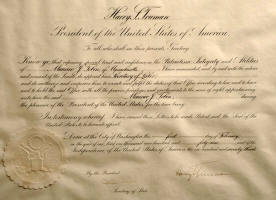 Harry S. Truman
President of the United States of America
To all who shall see these presents, Greeting
Know ye, that reposing special trust and confidence in the Patriotism, Integrity and Abilities
of Maurice J. Tobin of Massachusetts I have nominated, and by and with the advice
and consent of the Senate, do appoint him Secretary of Labor,
the pleasure of the President of the United States for the time being.
In testimony whereof I have caused these Letters to be made Patent and the Seal of the
United States to be hereunto affixed.
Done at the City of Washington this first day of February
in the year of our Lord one thousand nine hundred forty nine and of the
Independence of the United States of America the one hundred and seventy third.
By the President
Harry S. Truman
Secretary of State